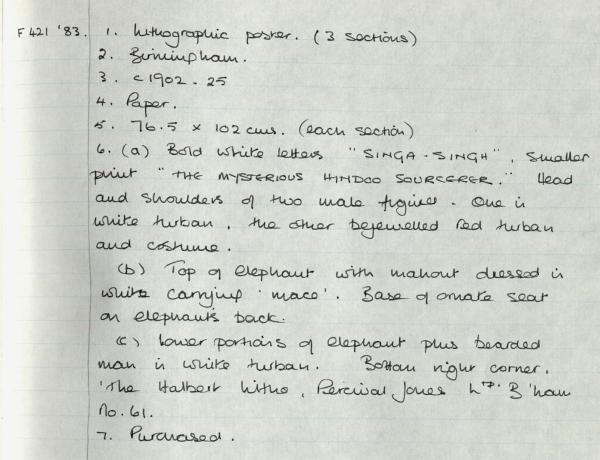 F 421 '83. 1. Lithographic poster. (3 sections)
2. Birmingham.
3. c 1902 - 25
4. Paper.
5. 76.5 x 102 cms. (each section)
6. (a) Bold white letters "SINGA-SINGH", smaller
print "THE MYSTERIOUS HINDOO SOURCERER." Head
and shoulders of two male figures. One in
white turban, the other bejewelled red turban
and costume.
(b) Top of elephant with mahout dressed in
white carrying 'mace'. Base of ornate seat
on elephants back.
(c) Lower portions of elephant plus bearded
man in white turban. Bottom right corner.
'The Halbert Litho, Percival Jones Ltd. B'ham
No. 61.
7. Purchased.